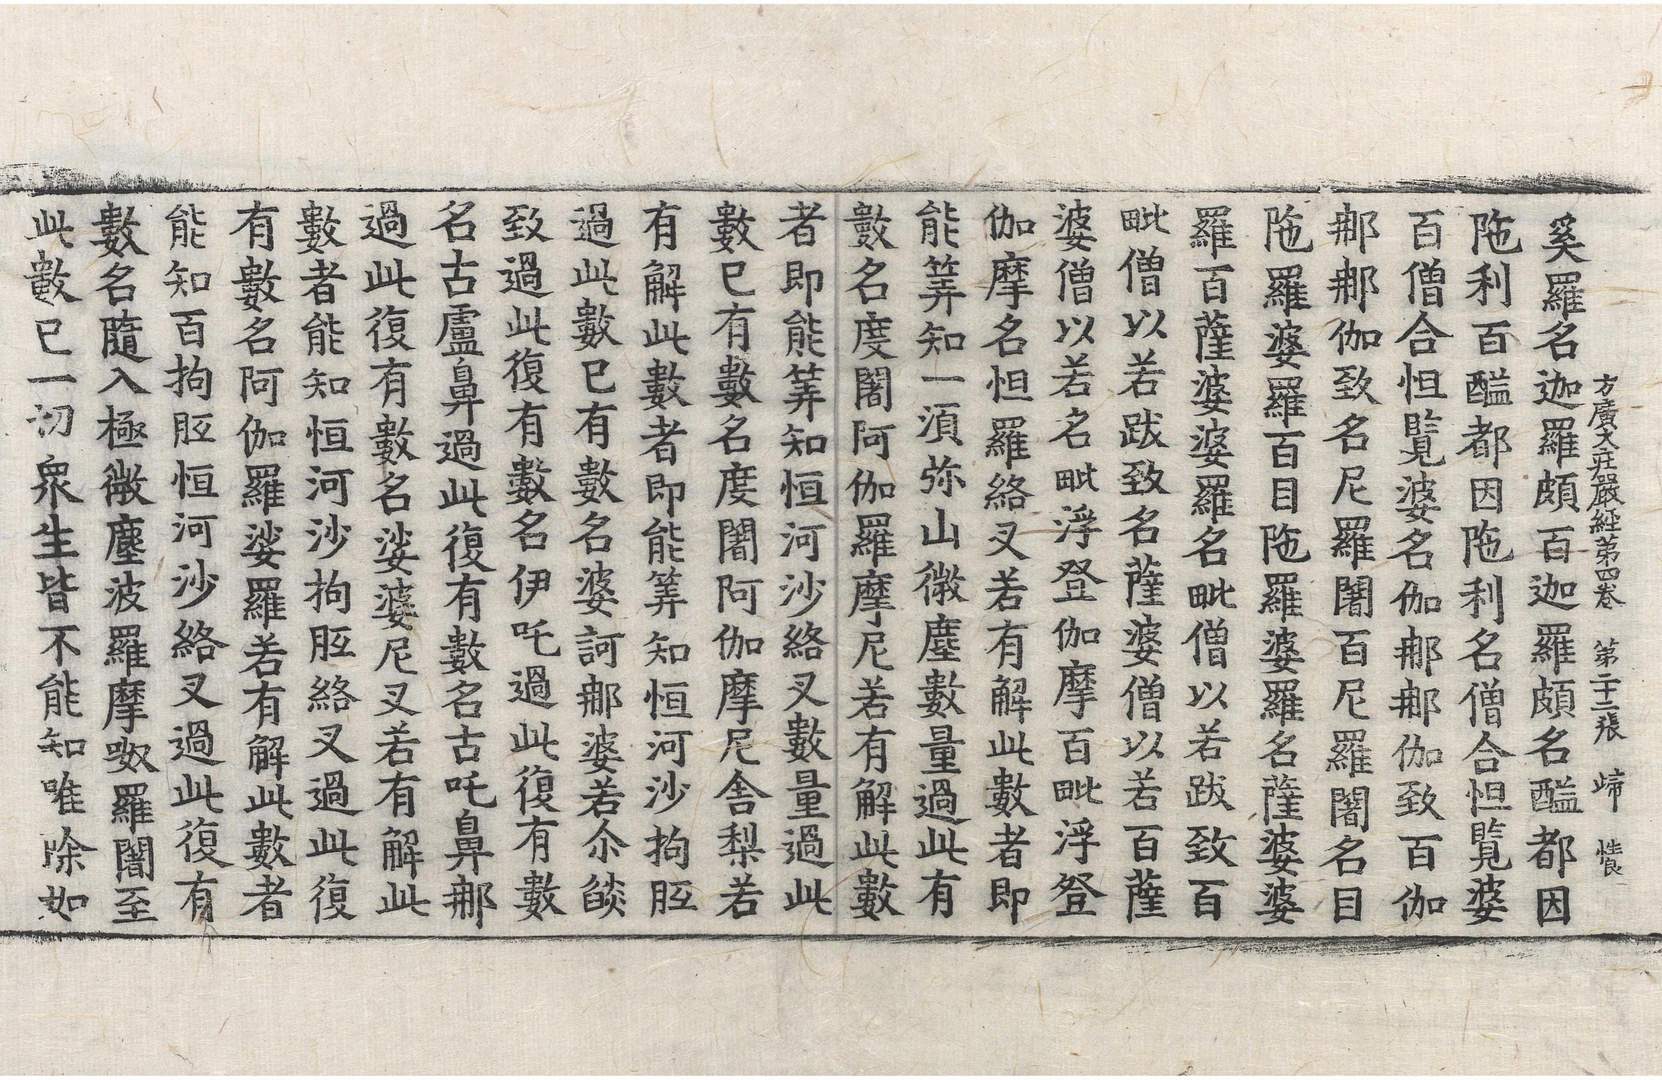 方廣大莊嚴經第四卷 第二十二張 歸
奚羅名迦羅頗百迦羅頗名醯都因
陁利百醯都因陁利名僧合怛覽婆
百僧合怛覽婆名伽郍郍伽致百伽
郍郍伽致名尼羅闍百尼羅闍名目
陁羅婆羅百目陁羅婆羅名薩婆婆
羅百薩婆婆羅名毗僧以若跋致百
毗僧以若跋致名薩婆僧以若百薩
婆僧以若名毗浮登伽摩百毗浮登
伽摩名怛羅絡叉若有解此數者即
能筭知一湏弥山微塵數量過此有
數名度闍阿伽羅摩尼若有解此數
者即能筭知恒河沙絡叉數量過此
數已有數名度闍阿伽摩尼舍梨若
有解此數者即能筭知恒河沙拘胝
過此數已有數名婆訶郍婆若尒燄
致過此復有數名伊吒過此復有數
名古盧鼻過此復有數名古吒鼻郍
過此復有數名娑婆尼叉若有解此
數者能知恒河沙拘胝絡叉過此復
有數名阿伽羅娑羅若有解此數者
能知百拘胝恒河沙絡叉過此復有
數名隨入極微塵波羅摩呶羅闍至
此數已一切衆生皆不能知唯除如